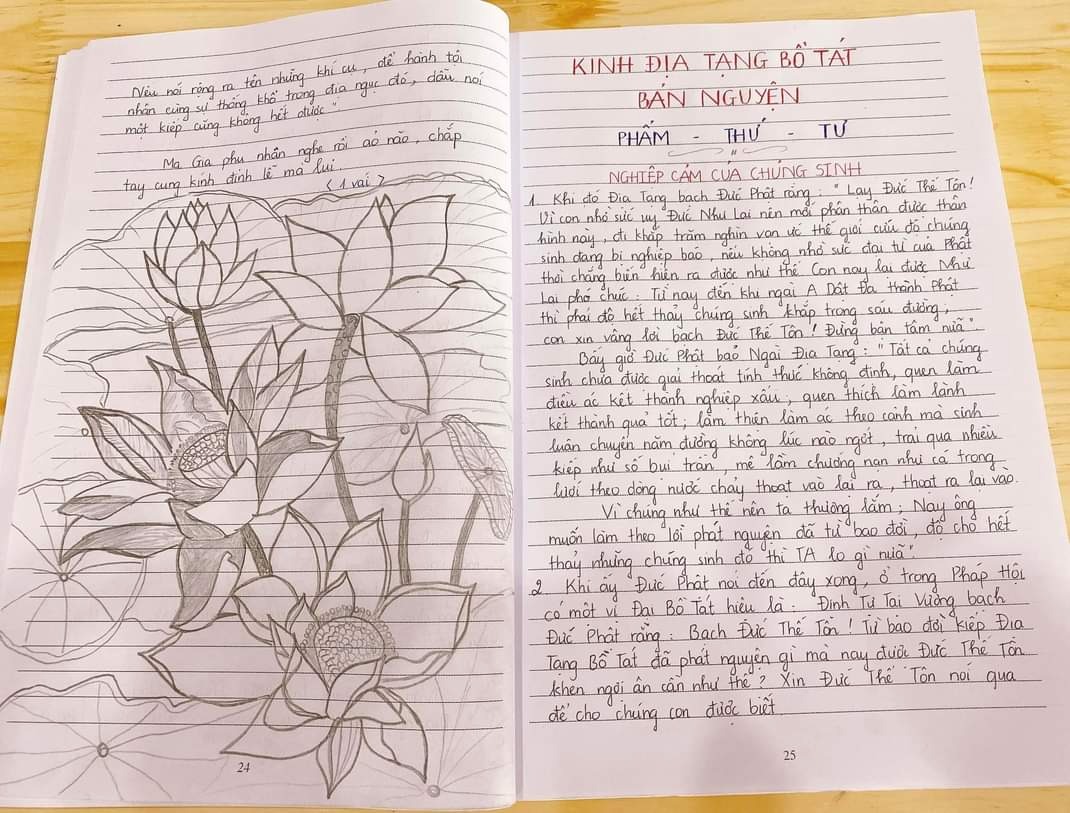 Nếu nói rộng ra tên những khí cụ, để hành tội
nhân cùng sự thống khổ trong địa ngục đó, dẫu nói
một kiếp cũng không hết được"
Ma Gia phu nhân nghe rồi áo não, chắp
tay cung kính đỉnh lễ mà lui.
< 1 vái >
24
KINH ĐỊA TẠNG BỒ TÁT
BẢN NGUYỆN
PHẨM - THỨ - TƯ
NGHIỆP CẢM CỦA CHÚNG SINH
1. Khi đó Địa Tạng bạch Đức Phật rằng: "Lạy Đức Thế Tôn!
Vì con nhờ sức uy Đức Như Lai nên mới phân thân được thân
hình này, đi khắp trăm nghìn vạn ức thế giới cứu độ chúng
sinh đang bị nghiệp báo, nếu không nhờ sức đại từ của Phật
thời chẳng biến hiện ra được như thế. Con nay lại được Như
Lai phó chúc: Từ nay đến khi ngài A Dật Đa thành Phật
thì phải độ hết thảy chúng sinh khắp trong sáu đường,
con xin vâng lời bạch Đức Thế Tôn! Đừng bận tâm nữa".
Bấy giờ Đức Phật bảo Ngài Địa Tạng: "Tất cả chúng
sinh chưa được giải thoát tính thức không định, quen làm
điều ác kết thành nghiệp xấu, quen thích làm lành
kết thành quả tốt; làm thiện làm ác theo cảnh mà sinh
luân chuyển năm đường không lúc nào ngớt, trải qua nhiều
kiếp như số bụi trần, mê lầm chướng nạn như cá trong
lưới theo dòng nước chảy thoạt vào lại ra, thoạt ra lại vào.
Vì chúng như thế nên ta thương lắm; Nay ông
muốn làm theo lời phát nguyện đã từ bao đời, độ cho hết
thảy những chúng sinh đó thì TA lo gì nữa".
2. Khi ấy Đức Phật nói đến đây xong, ở trong Pháp Hội
có một vị Đại Bồ Tát hiệu là: Định Tự Tại Vương bạch
Đức Phật rằng: Bạch Đức Thế Tôn! Từ bao đời kiếp Địa
Tạng Bồ Tát đã phát nguyện gì mà nay được Đức Thế Tôn
khen ngợi ân cần như thế? Xin Đức Thế Tôn nói qua
để cho chúng con được biết
25